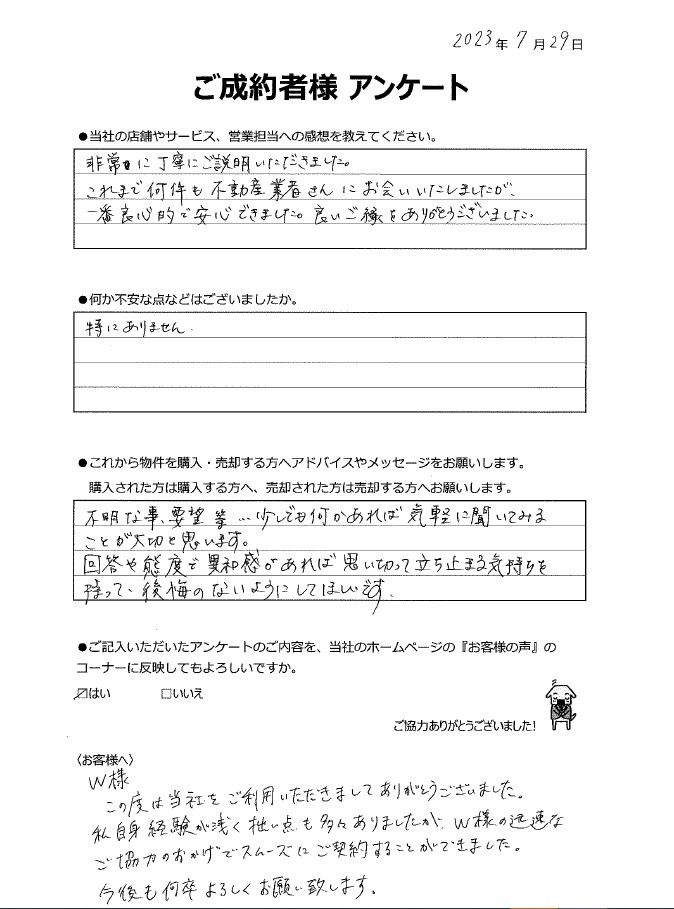 2023年7月29日
ご成約者様 アンケート
●当社の店舗やサービス、営業担当への感想を教えてください。
非常に丁寧にご説明いただきました。
これまで何件も不動産業者さんにお会いいたしましたが、
一番良心的で安心できました。良いご縁をありがとうございました。
●何か不安な点などはございましたか。
特にありません.
●これから物件を購入・売却する方へアドバイスやメッセージをお願いします。
購入された方は購入する方へ、売却された方は売却する方へお願いします。
不明な事、要望等…少しでも何かあれば気軽に聞いてみる
ことが大切と思います。
回答や態度で異和感があれば思い切って立ち止まる気持ちを
持って、後悔のないようにしてほしいです.
●ご記入いただいたアンケートのご内容を、当社のホームページの『お客様の声』の
コーナーに反映してもよろしいですか。
☑はい □いいえ
ご協力ありがとうございました!
〈お客様へ〉
W様
この度は当社をご利用いただきましてありがとうございました。
私自身経験が浅く拙い点も多々ありましたが、W様の迅速な
ご協力のおかげでスムーズにご契約することができました。
今後も何卒よろしくお願い致します。